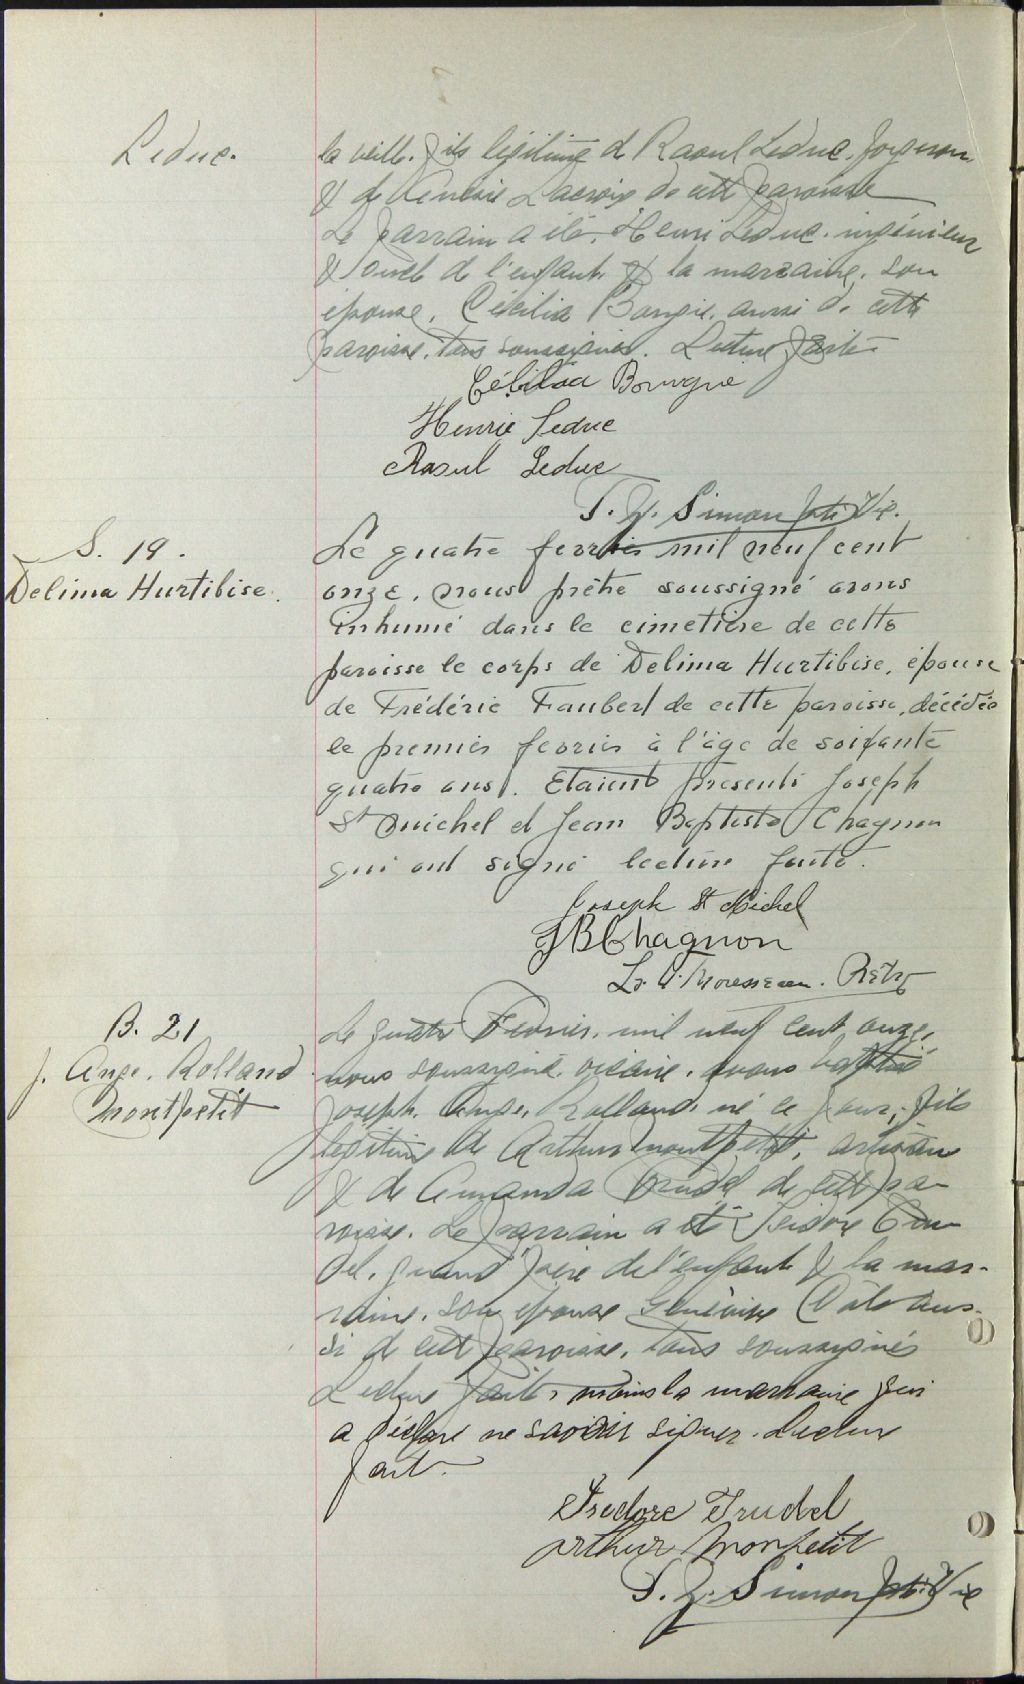 Leduc.
la veille. fils légitime de Raoul Leduc. forgeron
& de Lacroix de cette paroisse
Le parrain a été. Henri Leduc. ingénieur
& oncle de l'enfant & la marraine. son
épouse, Cécilia Bougie. aussi de cette
paroisse. tous soussignés. Lecture faite
Cécilia Bourgie
Henrie Leduc
Raoul Leduc
Simon ptr Vic.
S. 19.
Delima Hurtibise.
Le quatre fevrier mil neuf cent
onze. nous prêtre soussigné avons
inhumé dans le cimetière de cette
paroisse le corps de Delima Hurtibise, épouse
de Frédéric Faubert de cette paroisse, décédée
le premier fevrier à l'âge de soixante
quatre ans. Etaient présents Joseph
St Michel et Jean Baptiste Chagnon
qui ont signé lecture faite.
Joseph St Michel
JBChagnon
Ptre
B. 21
J. Ange. Rolland
Montpetit
Le quatre Fevrier. mil neuf cent onze,
nous soussigné vicaire. avons baptisé
Joseph. Ange. Rolland. né ce jour, fils
légitime de Arthur Montpetit, artisan
& de Amanda Trudel de cette pa-
roisse. Le parrain a été Isidore Tru-
del, grand père de l'enfant & la mar-
raine. son épouse Côté aus-
si de cette paroisse. tous soussignés
Lecture faite, moins la marraine qui
a déclaré ne savoir signer. Lecture
faite.
Isedore Trudel
Arthur Monpetit
Simon ptr Vic